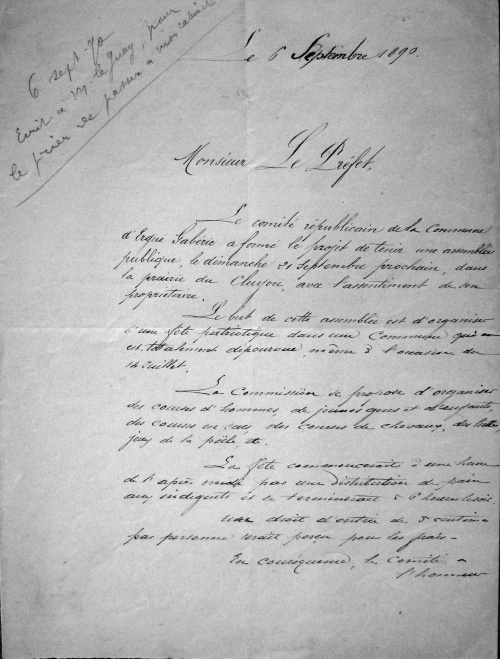 6 sept 90
Ecrit à M. le Guay, pour
le prier de passer à mon cabinet
Le 6 Septembre 1890.
Monsieur Le Préfet,
Le comité républicain de la Commune
d'Ergué Gabéric a formé le projet de tenir une assemblée
publique le dimanche 21 Septembre prochain, dans
la prairie du Cluyou, avec l'assentiment de son
propriétaire.
Le but de cette assemblée est d'organiser
une fête patriotique dans une Commune qui en
est totalement dépourvue, même à l'occasion du
14 Juillet.
La Commission se propose d'organiser
des courses d'hommes, de jeunes gens et d'enfants,
des courses en sac, des courses de chevaux, des luttes
jeux de la poële &.
La fête commencerait à une heure
de l'après midi par une distribution de pain
aux indigents et se terminerait à 6 heures le soir.
Un droit d'entrée de 5 centimes
par personne serait perçu pour les frais.
En conséquence, le Comité a
l'honneur